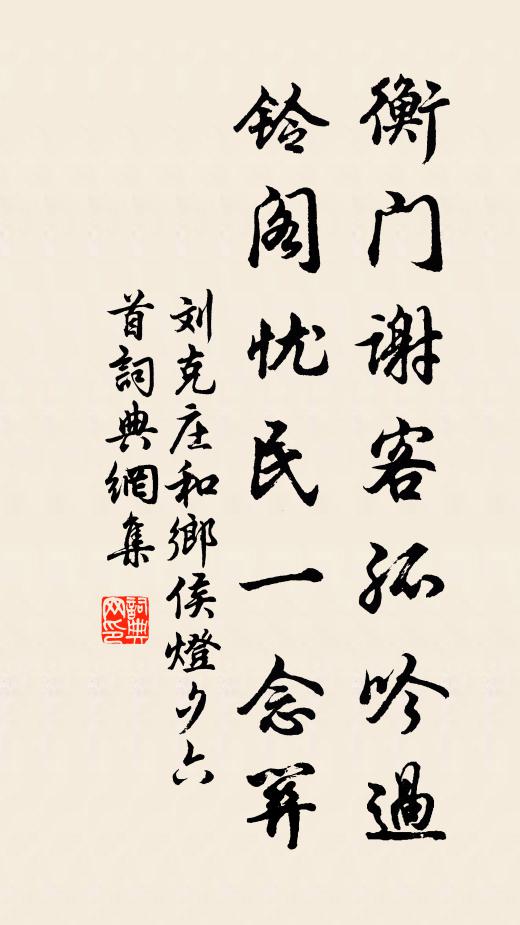 衡门谢客孤吟過
鈴阁忧民一念
刘克庄和鄉侯燈夕六
首詞典網集
詞典网印